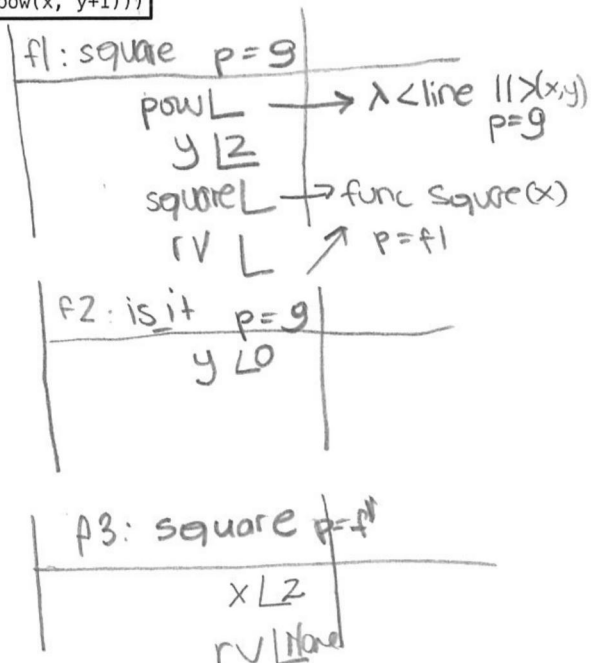 pow(x, y+1)))
f1: square p=g
pow → λ<line 11>(x,y)
p=g
y 2
square → func Squre(x)
rv p=f1
f2: is_it p=g
y 0
f3: square p=f1
x 2
rv None